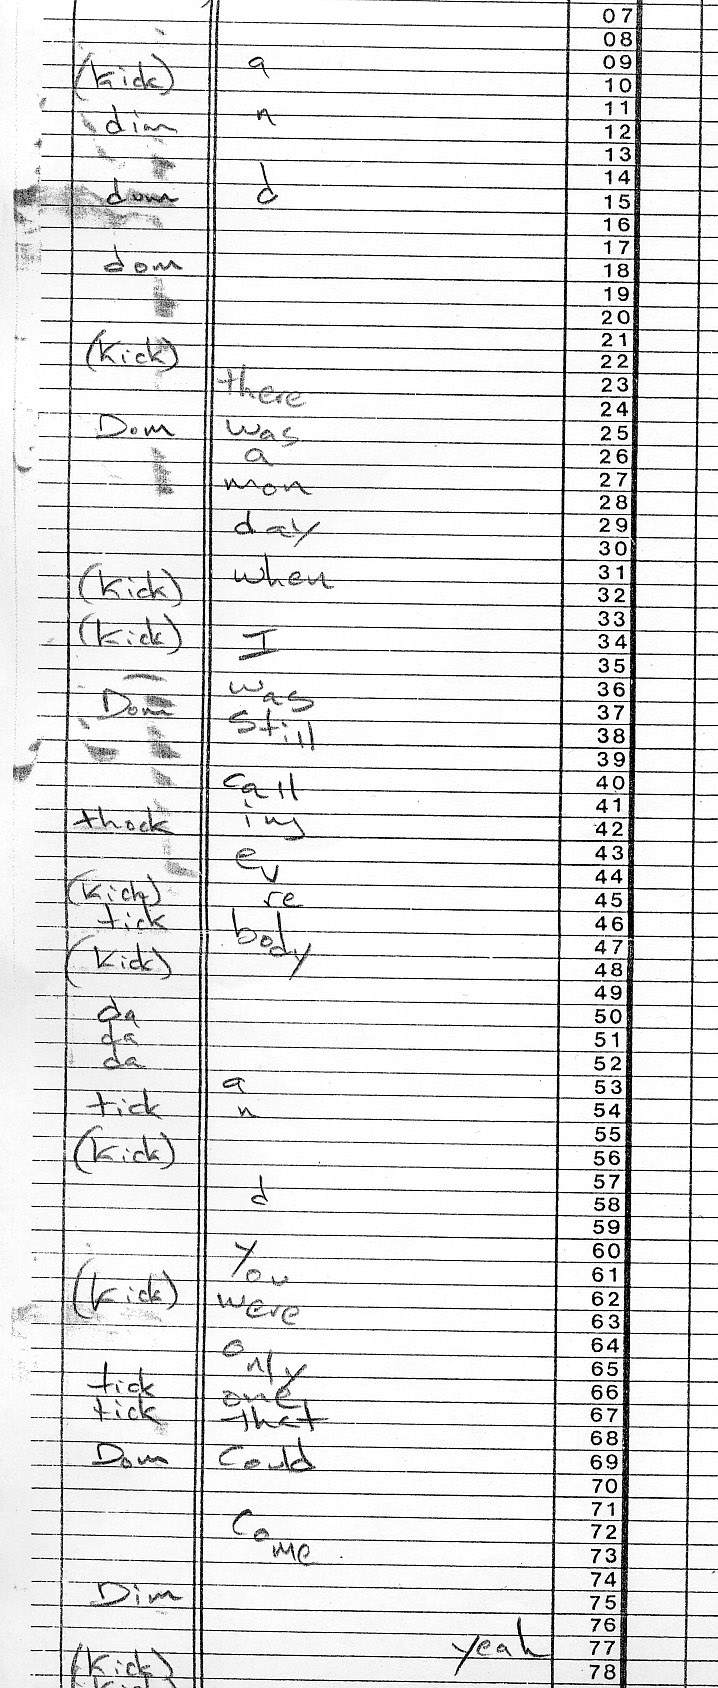 07
08
(Kick) a 09
10
dim n 11
12
13
14
dom d 15
16
17
dom 18
19
20
21
(Kick) 22
there 23
24
Dom was 25
a 26
mon 27
28
day 29
30
(Kick) when 31
32
33
(Kick) I 34
35
was 36
Dom 37
Still 38
39
call 40
41
thock ing 42
43
ev 44
(Kick) re 45
tick 46
body 47
(Kick) 48
49
da 50
da 51
da 52
a 53
tick n 54
55
(Kick) 56
57
d 58
59
y 60
ou 61
(Kick) were 62
63
o 64
nly 65
tick one 66
tick that 67
68
Dom Could 69
70
71
Co 72
me 73
74
Dim 75
76
yeah 77
(Kick) 78